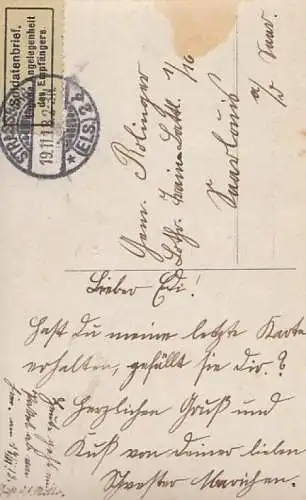 Soldatenbrief.
Eigene Angelegenheit
des Empfängers.
STRASSBURG
19.11.18.
* (ELS.) 2 b
Gem. Rolinger
Lothr. Train-Batl. 1/16
Saarlouis
a/d Saar
Lieber Edi!
Hast Du meine letzte Karte
erhalten, gefällt sie dir?
Herzlichen Gruß und
Kuß von deiner lieben
Schwester Marichen.